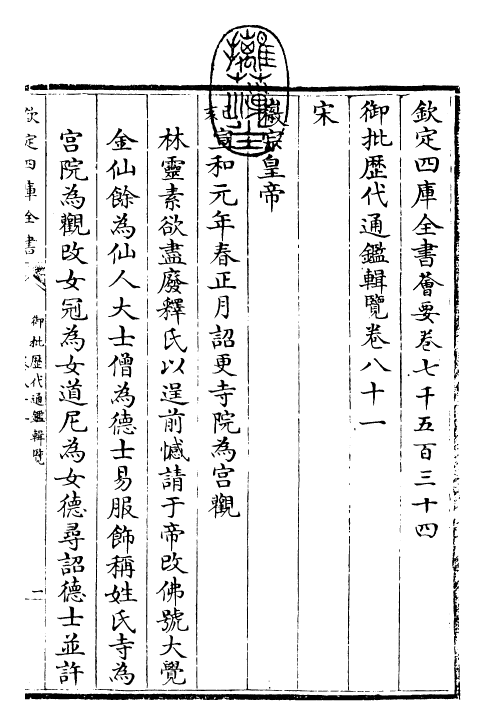 欽定四庫全書薈要卷七千五百三十四
御批歷代通鑑輯覽卷八十一
宋
徽宗皇帝
己亥宣和元年春正月詔更寺院為宮觀
林靈素欲盡廢釋氏以逞前憾請于帝改佛號大覺
金仙餘為仙人大士僧為德士易服飾稱姓氏寺為
宮院為觀改女冠為女道尼為女德尋詔德士並許
欽定四庫全書
御批歷代通鑑輯覽
一